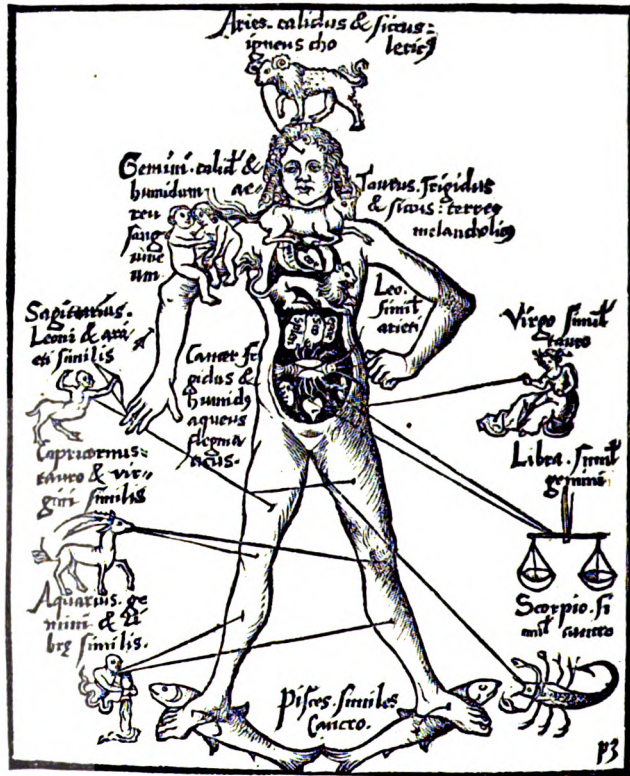 Aries. calidus & siccus:
igneus cho lericꝰ
Gemini. calid' &
humidum ae-
reu
sang
uine
um
Taurus. frigidus
& sicus: terreꝰ
melancholicꝰ
Leo.
simil'
arieti
Sagitarius.
Leoni & ari-
eti similis
Cancer fr
gidus &
humidꝰ
aqueus
flegma
ticus.
Virgo simil'
tauro
Capricornus.
tauro & vir-
gini similis
Libra. simil'
gemini
Aquarius. ge
mini & li
brę similis.
Scorpio. si
mil' cancro
Pisces. similes
Cancro.
p3